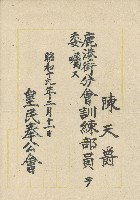 陳天爵
鹿港街分會訓練部員ヲ
委囑ス
昭和十九年三月十一日
皇民奉公會